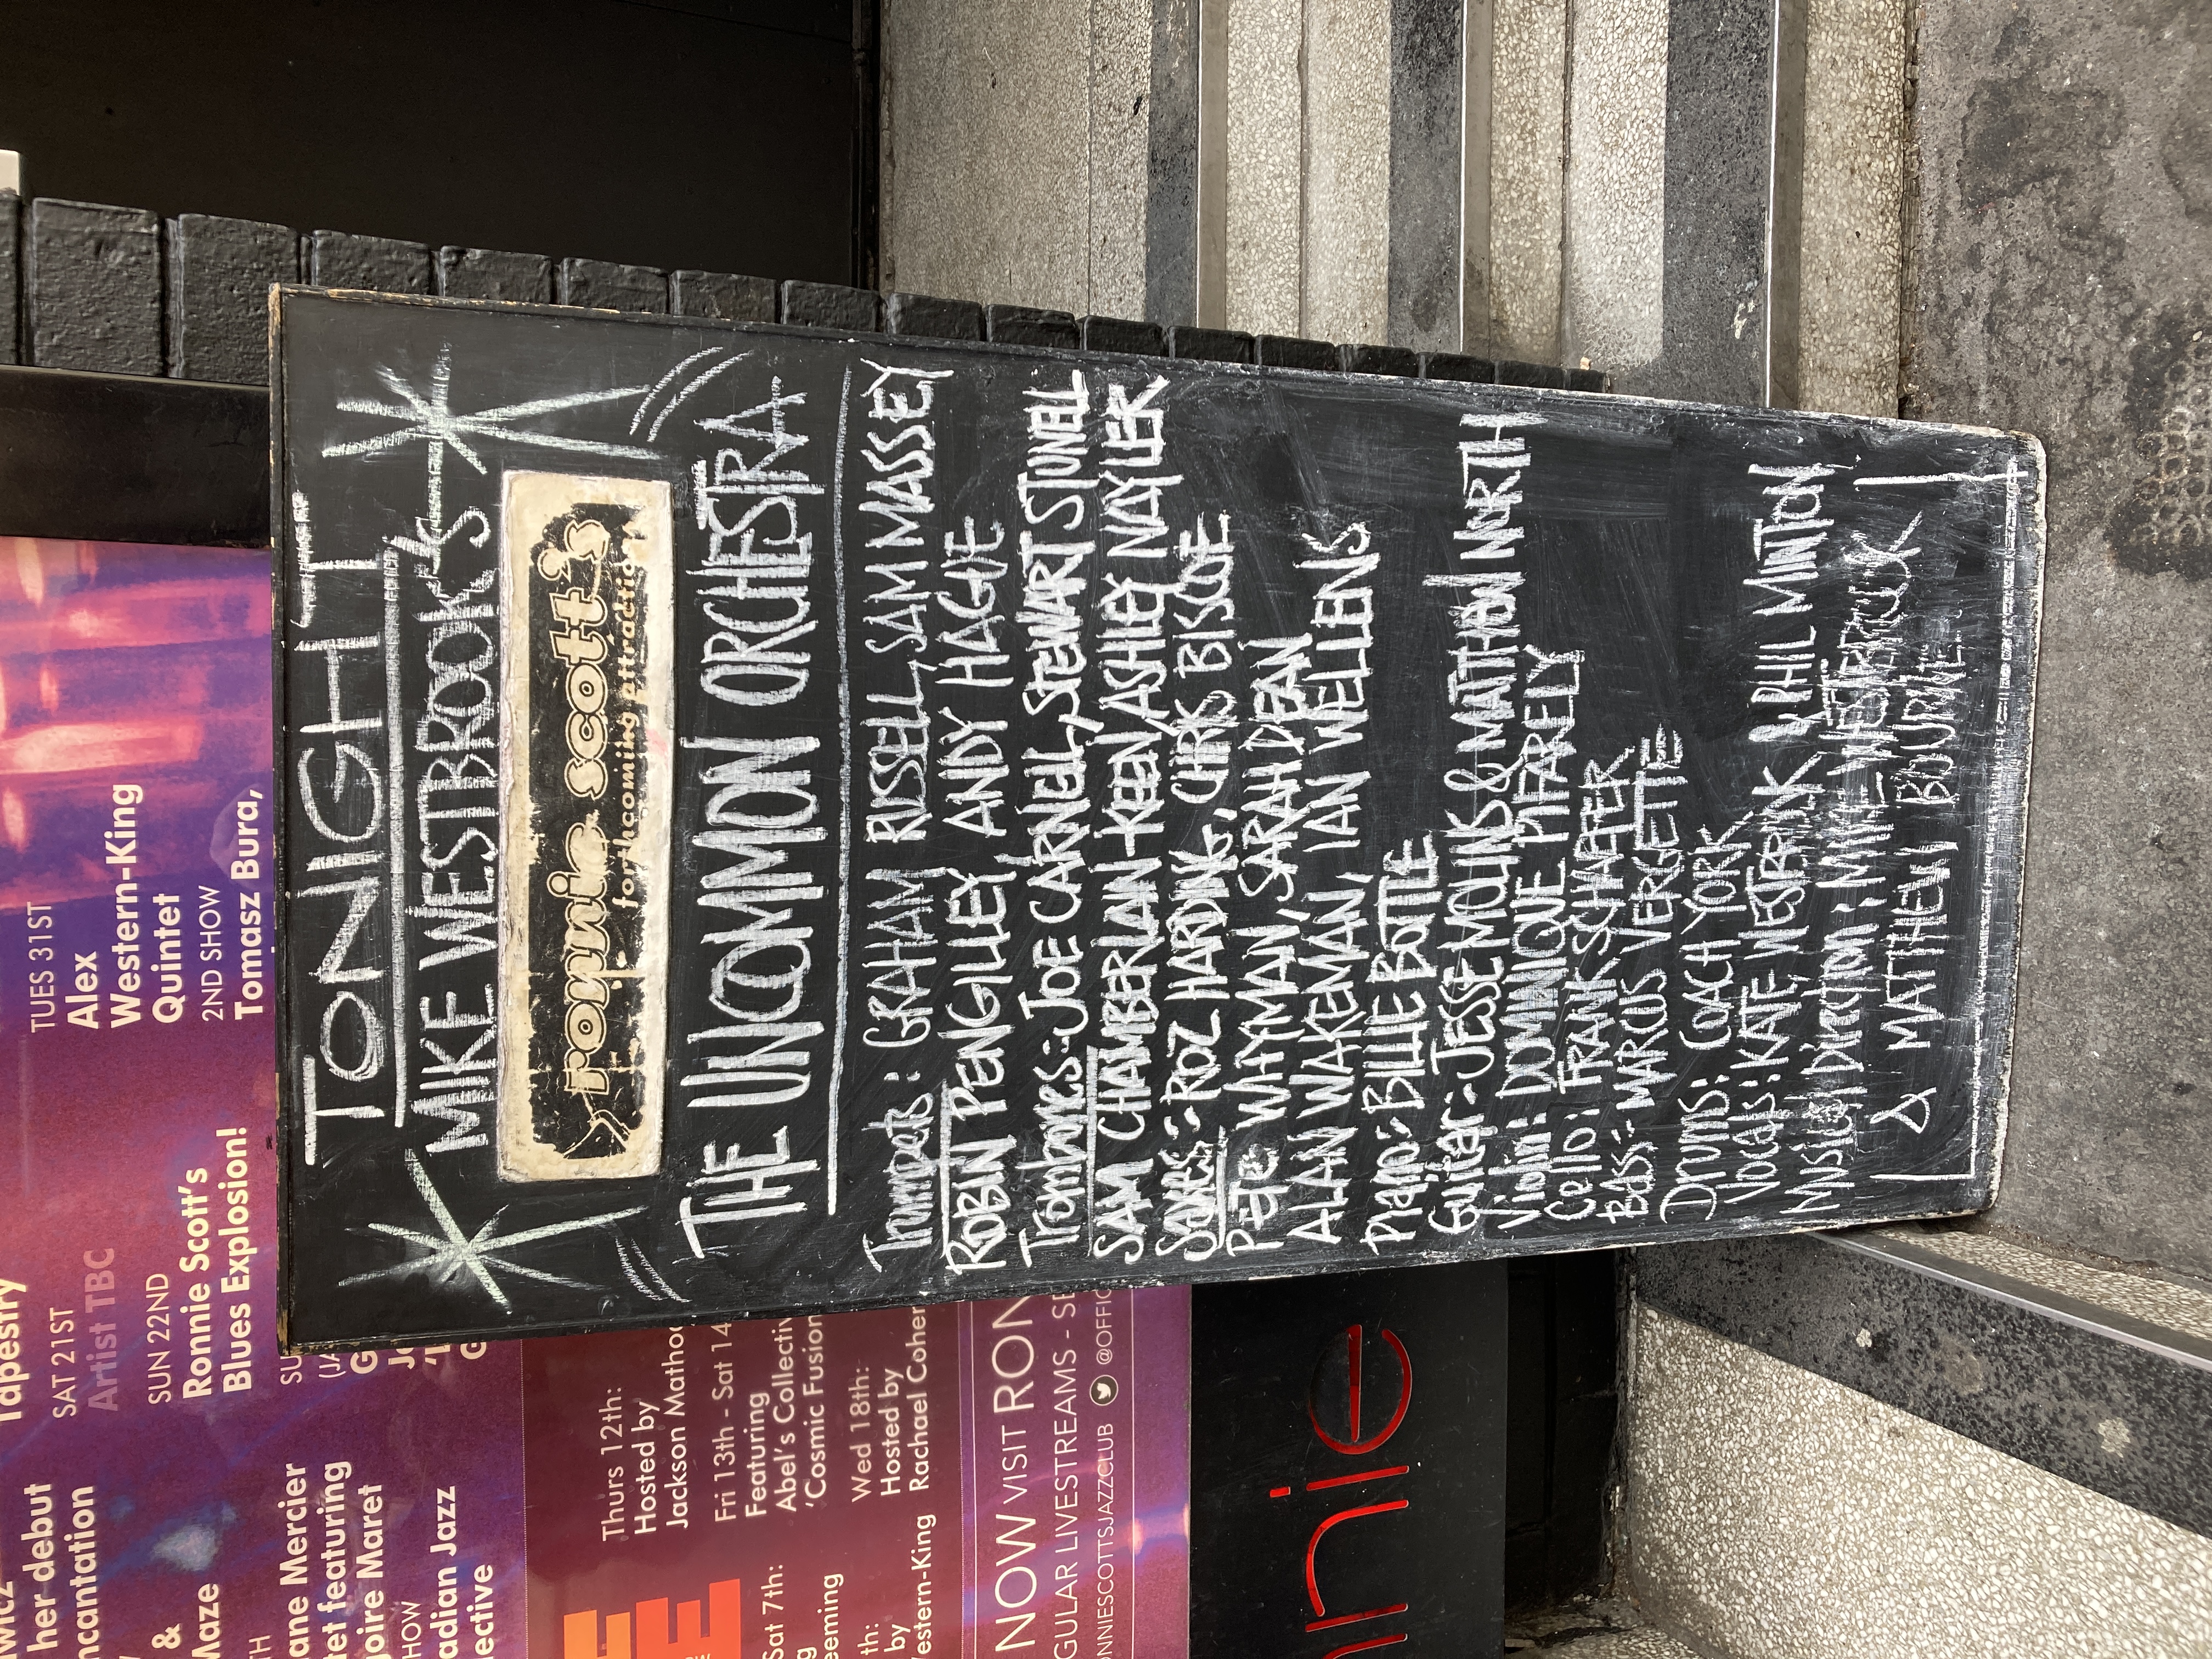 her debut
Tapestry
SAT 21ST
Artist TBC
SUN 22ND
Ronnie Scott's
Blues Explosion!
TUES 31ST
Alex
Western-King
Quintet
2ND SHOW
Tomasz Bura,
&
Maze
Mercier
featuring
Maret
Jazz
Thurs 12th:
Hosted by
Jackson
Fri 13th - Sat 14
Featuring
Abel's
'Cosmic Fusion
Sat 7th:
by
Western-King
Wed 18th:
Hosted by
Rachael
NOW VISIT RON
LIVESTREAMS - SE
ONNIESCOTTSJAZZCLUB @OFFIC
nnie
TONIGHT
MIKE WESTBROOK'S
ronnie scott's
forthcoming attractions
THE UNCOMMON ORCHESTRA
Trumpets: GRAHAM RUSSELL, SAM MASSEY
ROBIN PENGILLEY, ANDY HAGUE
Trombones: JOE CARNELL, STEWART STUNELL
SAM CHAMBERLAIN-KEEN, ASHLEY NAYLER
Saxes: ROZ HARDING, CHRIS BISCOE
PETE WHYMAN, SARAH DEAN
ALAN WAKEMAN, IAN WELLENS
Piano: BILLIE BOTTLE
Guitar: JESSE MOLINS & MATTHEW NORTH
Violin: DOMINIQUE PIFARELY
Cello: FRANK SCHAEFER
Bass: MARCUS VERGETTE
Drums: COACH YORK
Vocals: KATE WESTBROOK & PHIL MINTON
Musical Direction: MIKE WESTBROOK
& MATTHEW BOURNE